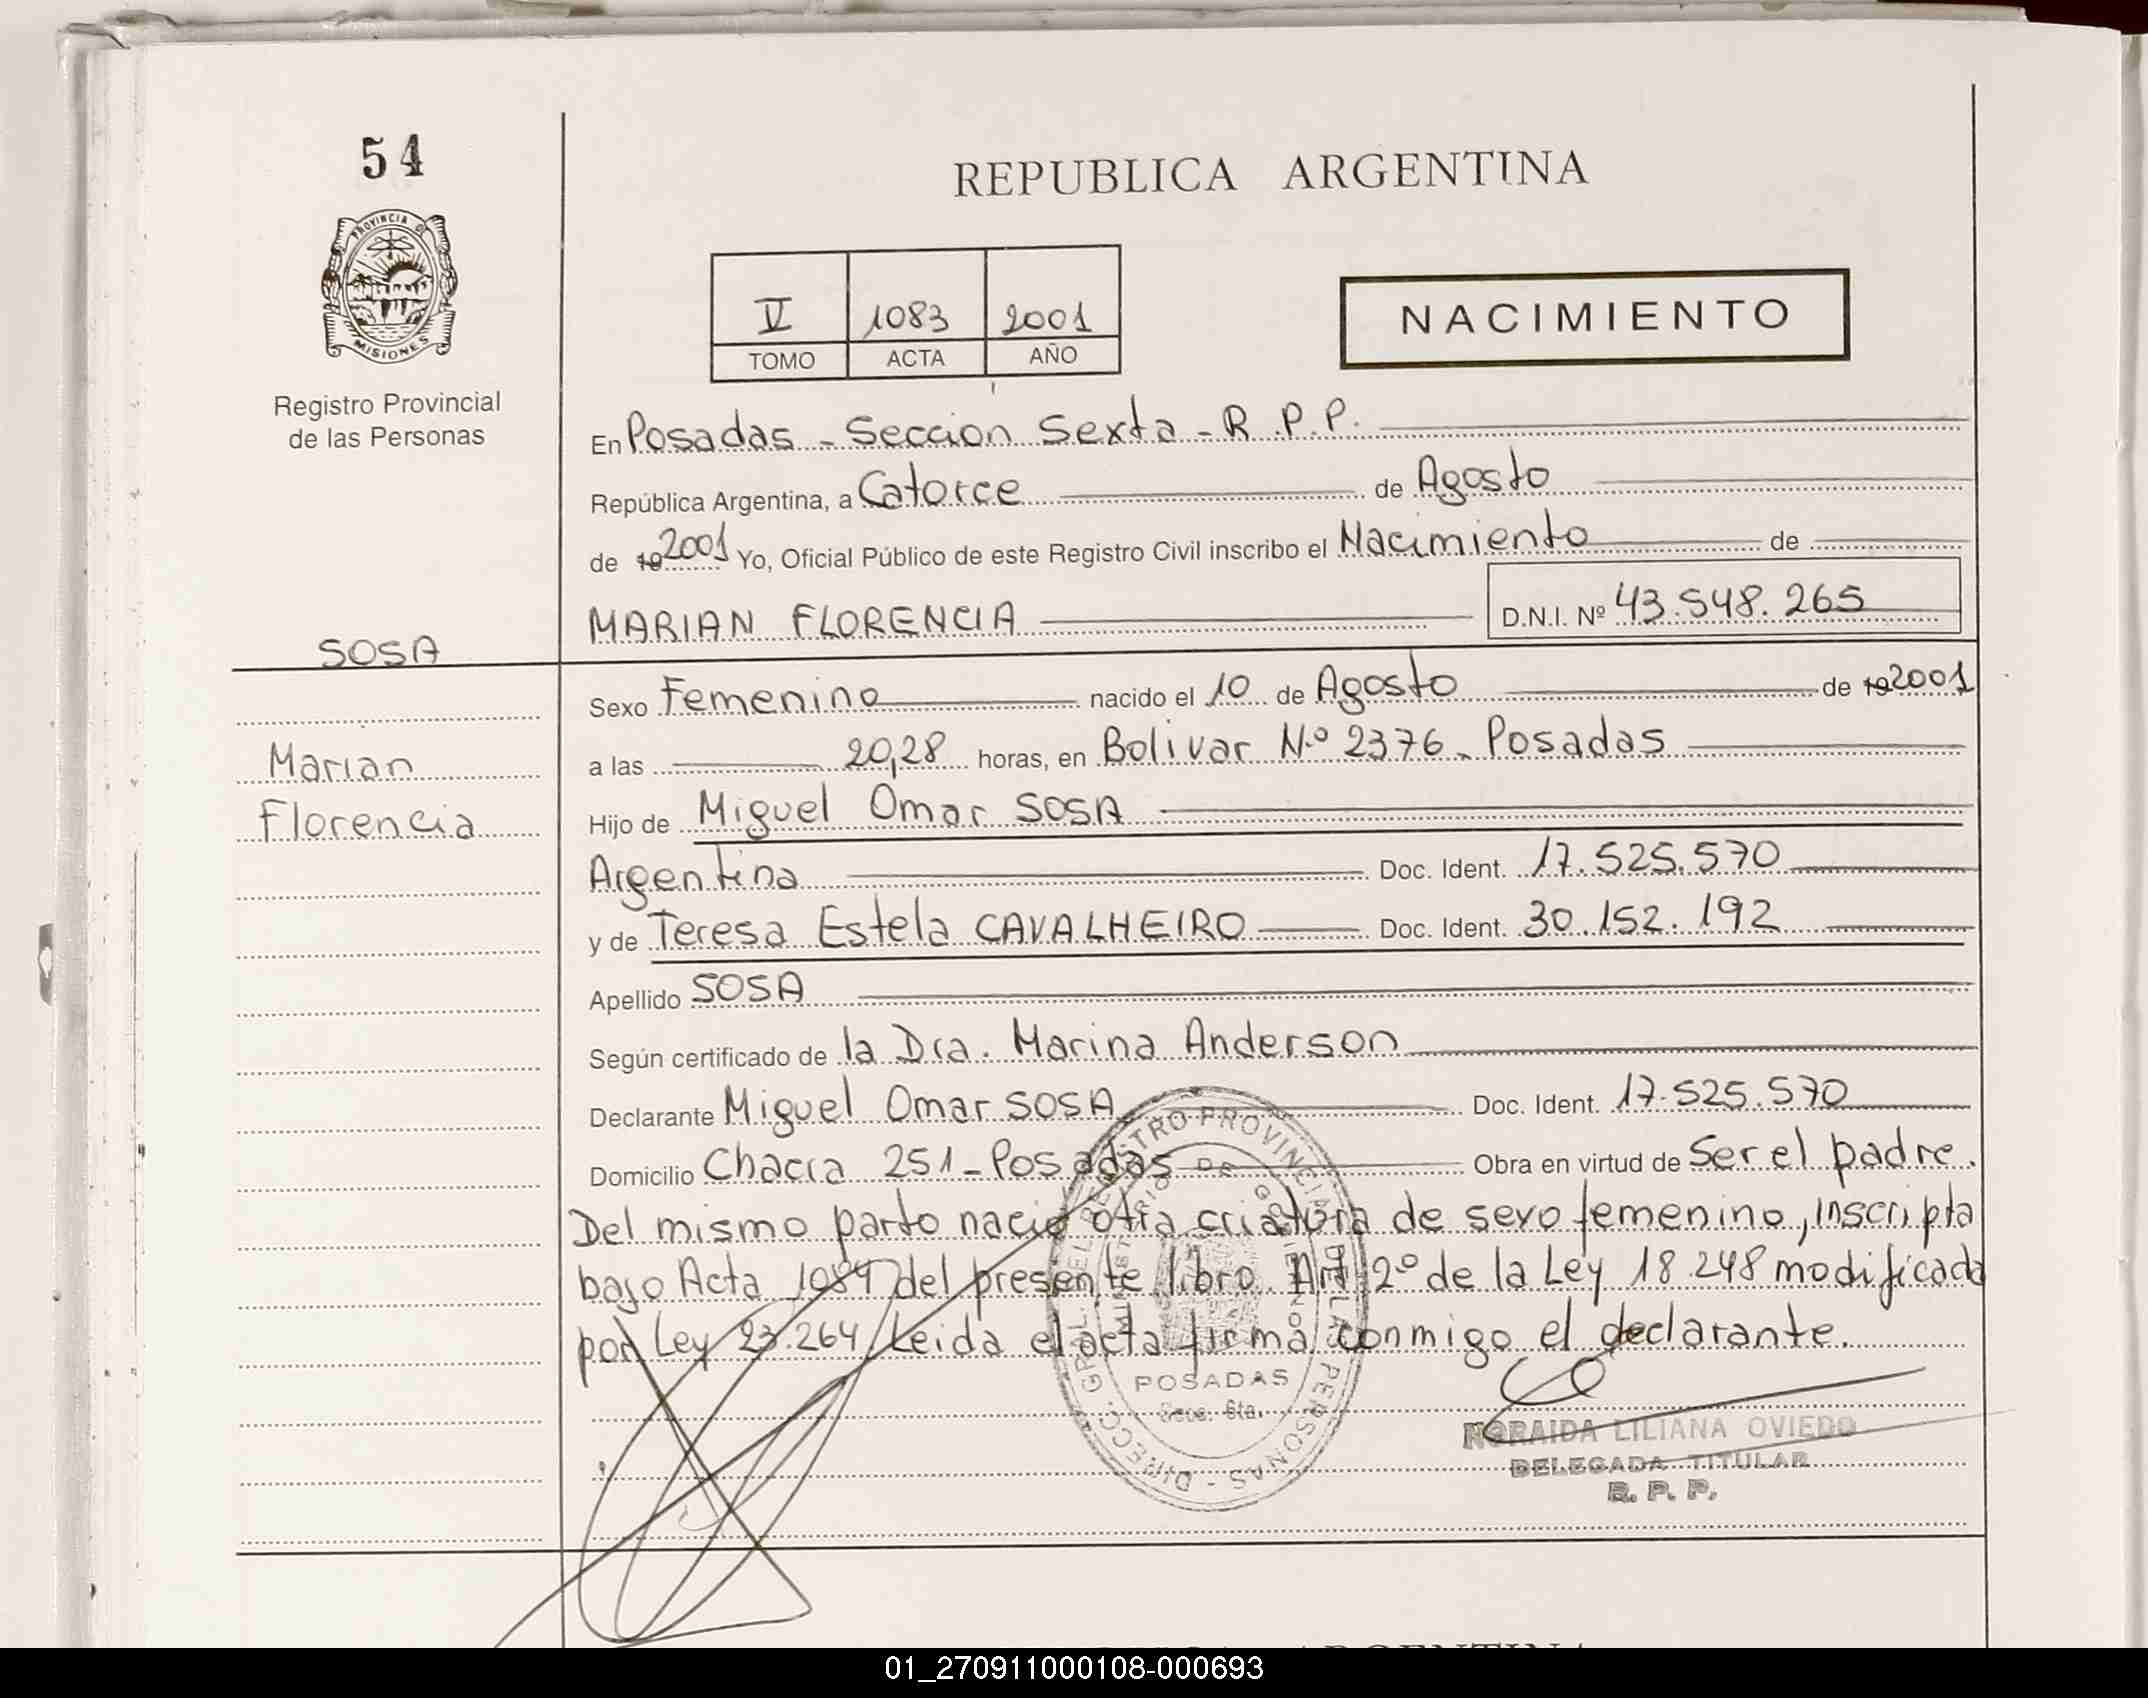 54
REPUBLICA ARGENTINA
PROVINCIA DE
MISIONES
Registro Provincial
de las Personas
V 1083 2001
TOMO ACTA AÑO
NACIMIENTO
En Posadas - Seccion Sexta - R.P.P.
República Argentina, a Catorce de Agosto
de 19 2001 Yo, Oficial Público de este Registro Civil inscribo el Nacimiento de
MARIAN FLORENCIA D.N.I. Nº 43.548.265
SOSA
Marian
Florencia
Sexo Femenino nacido el 10 de Agosto de 19 2001
a las 20,28 horas, en Bolivar N.º 2376 - Posadas
Hijo de Miguel Omar SOSA
Argentina Doc. Ident. 17.525.570
y de Teresa Estela CAVALHEIRO Doc. Ident. 30.152.192
Apellido SOSA
Según certificado de la Dra. Marina Anderson
Declarante Miguel Omar SOSA Doc. Ident. 17.525.570
Domicilio Chacra 251 - Posadas Obra en virtud de Ser el padre.
Del mismo parto nació otra criatura de sexo femenino, inscripta
bajo Acta 1084 del presente libro. Art 2º de la Ley 18.248 modificada
por Ley 23.264. Leida el acta firma conmigo el declarante.
DIRECC. GRAL. DEL REGISTRO PROVINCIAL DE LAS PERSONAS
MINISTERIO DE GOBIERNO
POSADAS
Secc. 6ta.
NORAIDA LILIANA OVIEDO
DELEGADA TITULAR
R. P. P.
01_270911000108-000693